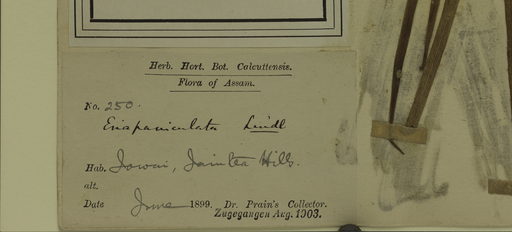 Herb. Hort. Bot. Calcuttensis.
Flora of Assam.
No. 250.
Eria paniculata Lindl
Hab. Jowai, Jaintea Hills.
alt.
Date June 1899. Dr. Prain's Collector.
Zugegangen Aug. 1903.